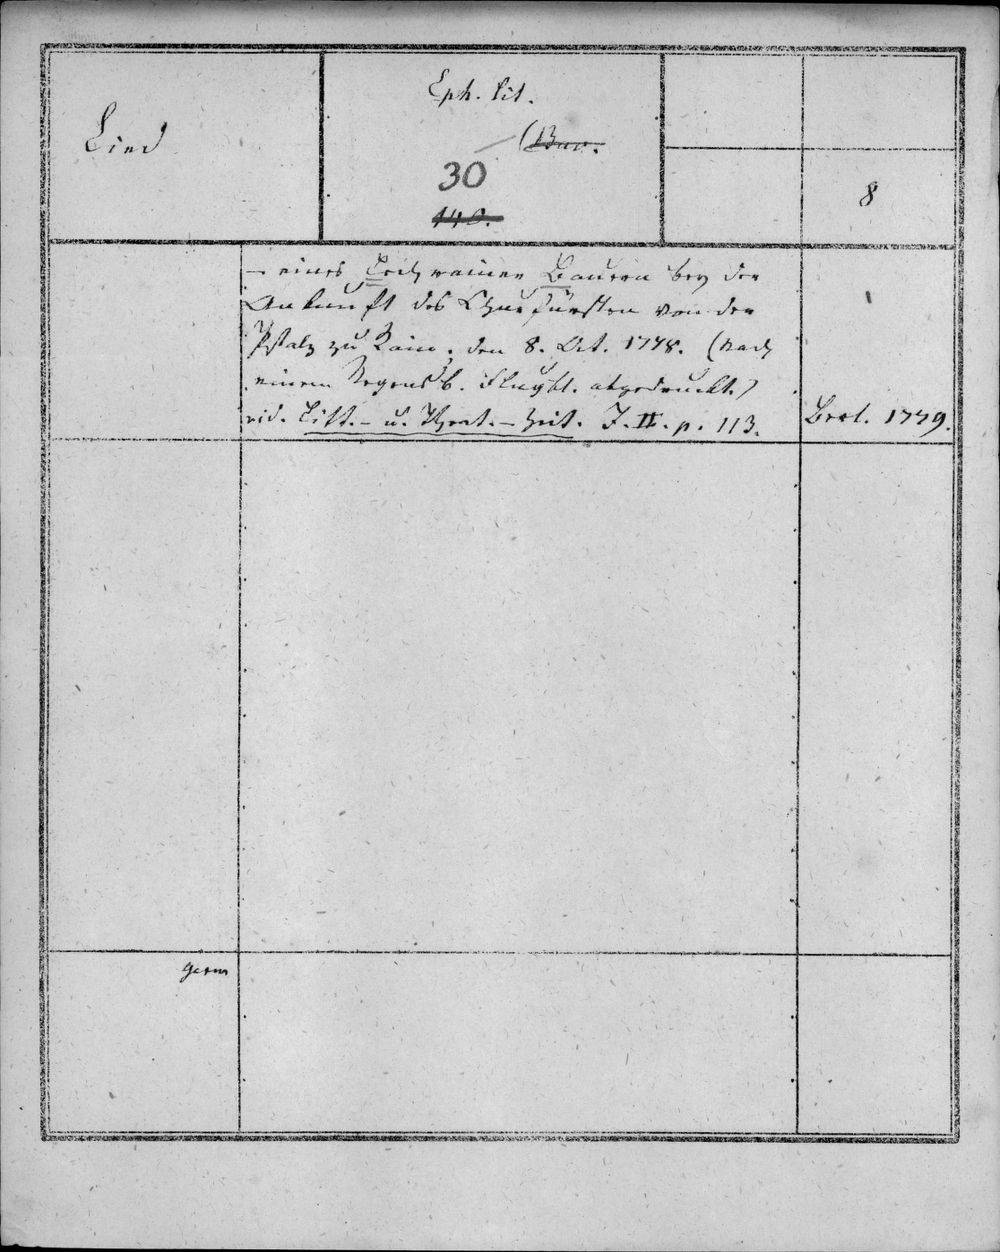 Lied
Eph. lit.
(Bav.
30
140.
8
— eines Lechrainer Bauern bey der
Ankunft des Churfürsten von der
Pfalz zu Rain, den 8. Oct. 1778. (Nach
einem Regensb. Flugbl. abgedruckt.)
vid. Litt.- u. Theat.-Zeit. J. II. p. 113.
Berl. 1779.
germ